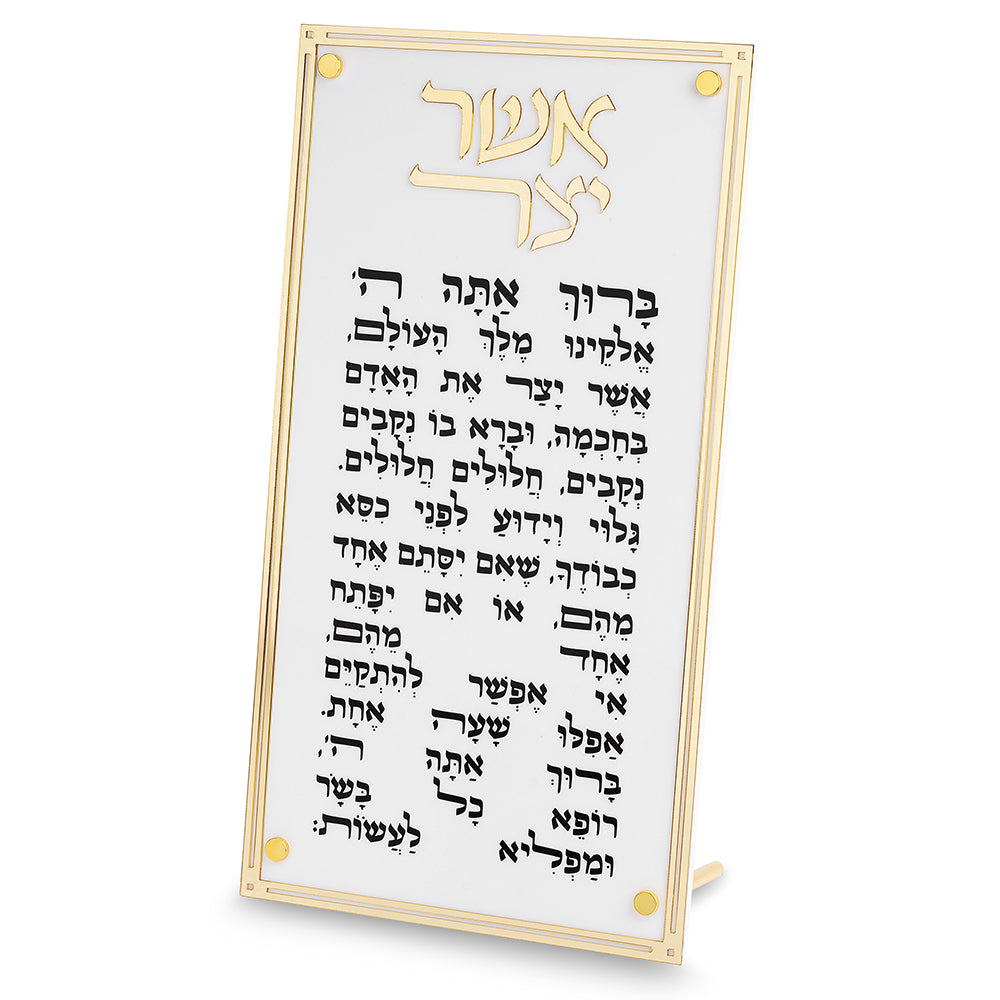 אשר
יצר
בָּרוּךְ אַתָּה ה'
אֱלֹקֵינוּ מֶלֶךְ הָעוֹלָם,
אֲשֶׁר יָצַר אֶת הָאָדָם
בְּחָכְמָה, וּבָרָא בוֹ נְקָבִים
נְקָבִים, חֲלוּלִים חֲלוּלִים.
גָּלוּי וְיָדוּעַ לִפְנֵי כִסֵּא
כְבוֹדֶךָ, שֶׁאִם יִסָּתֵם אֶחָד
מֵהֶם, אוֹ אִם יִפָּתֵחַ
אֶחָד מֵהֶם,
אִי אֶפְשַׁר לְהִתְקַיֵּם
אֲפִלּוּ שָׁעָה אֶחָת.
בָּרוּךְ אַתָּה ה',
רוֹפֵא כָל בָּשָׂר
וּמַפְלִיא לַעֲשׂוֹת: